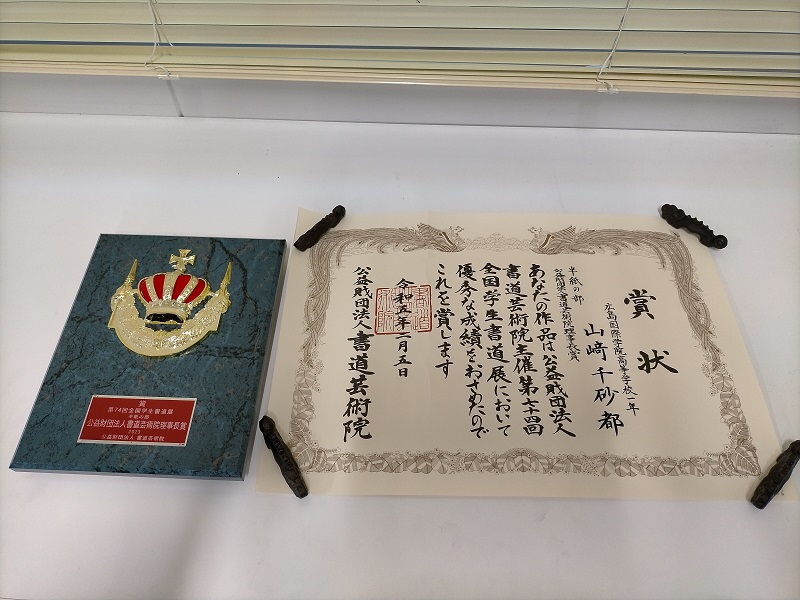 賞
第74回全国学生書道展
半紙の部
公益財団法人書道芸術院理事長賞
2023
公益財団法人 書道芸術院
賞状
半紙の部
公益財団法人書道芸術院理事長賞
広島国際学院高等学校一年
山﨑千砂都
あなたの作品は公益財団法人
書道芸術院主催第七十四回
全国学生書道展において
優秀な成績をおさめたので
これを賞します
令和五年二月五日
公益財団法人書道芸術院